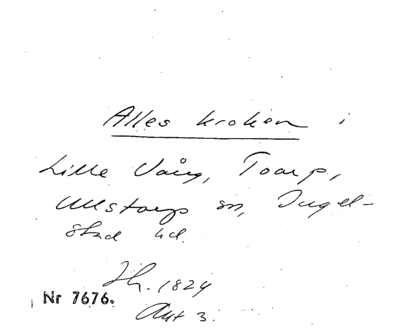 Alles kroken i
Lille Vång, Toarp,
Ullstorp sn, Ingel-
stad hd.
Th. 1824
Nr 7676.
Akt 3.